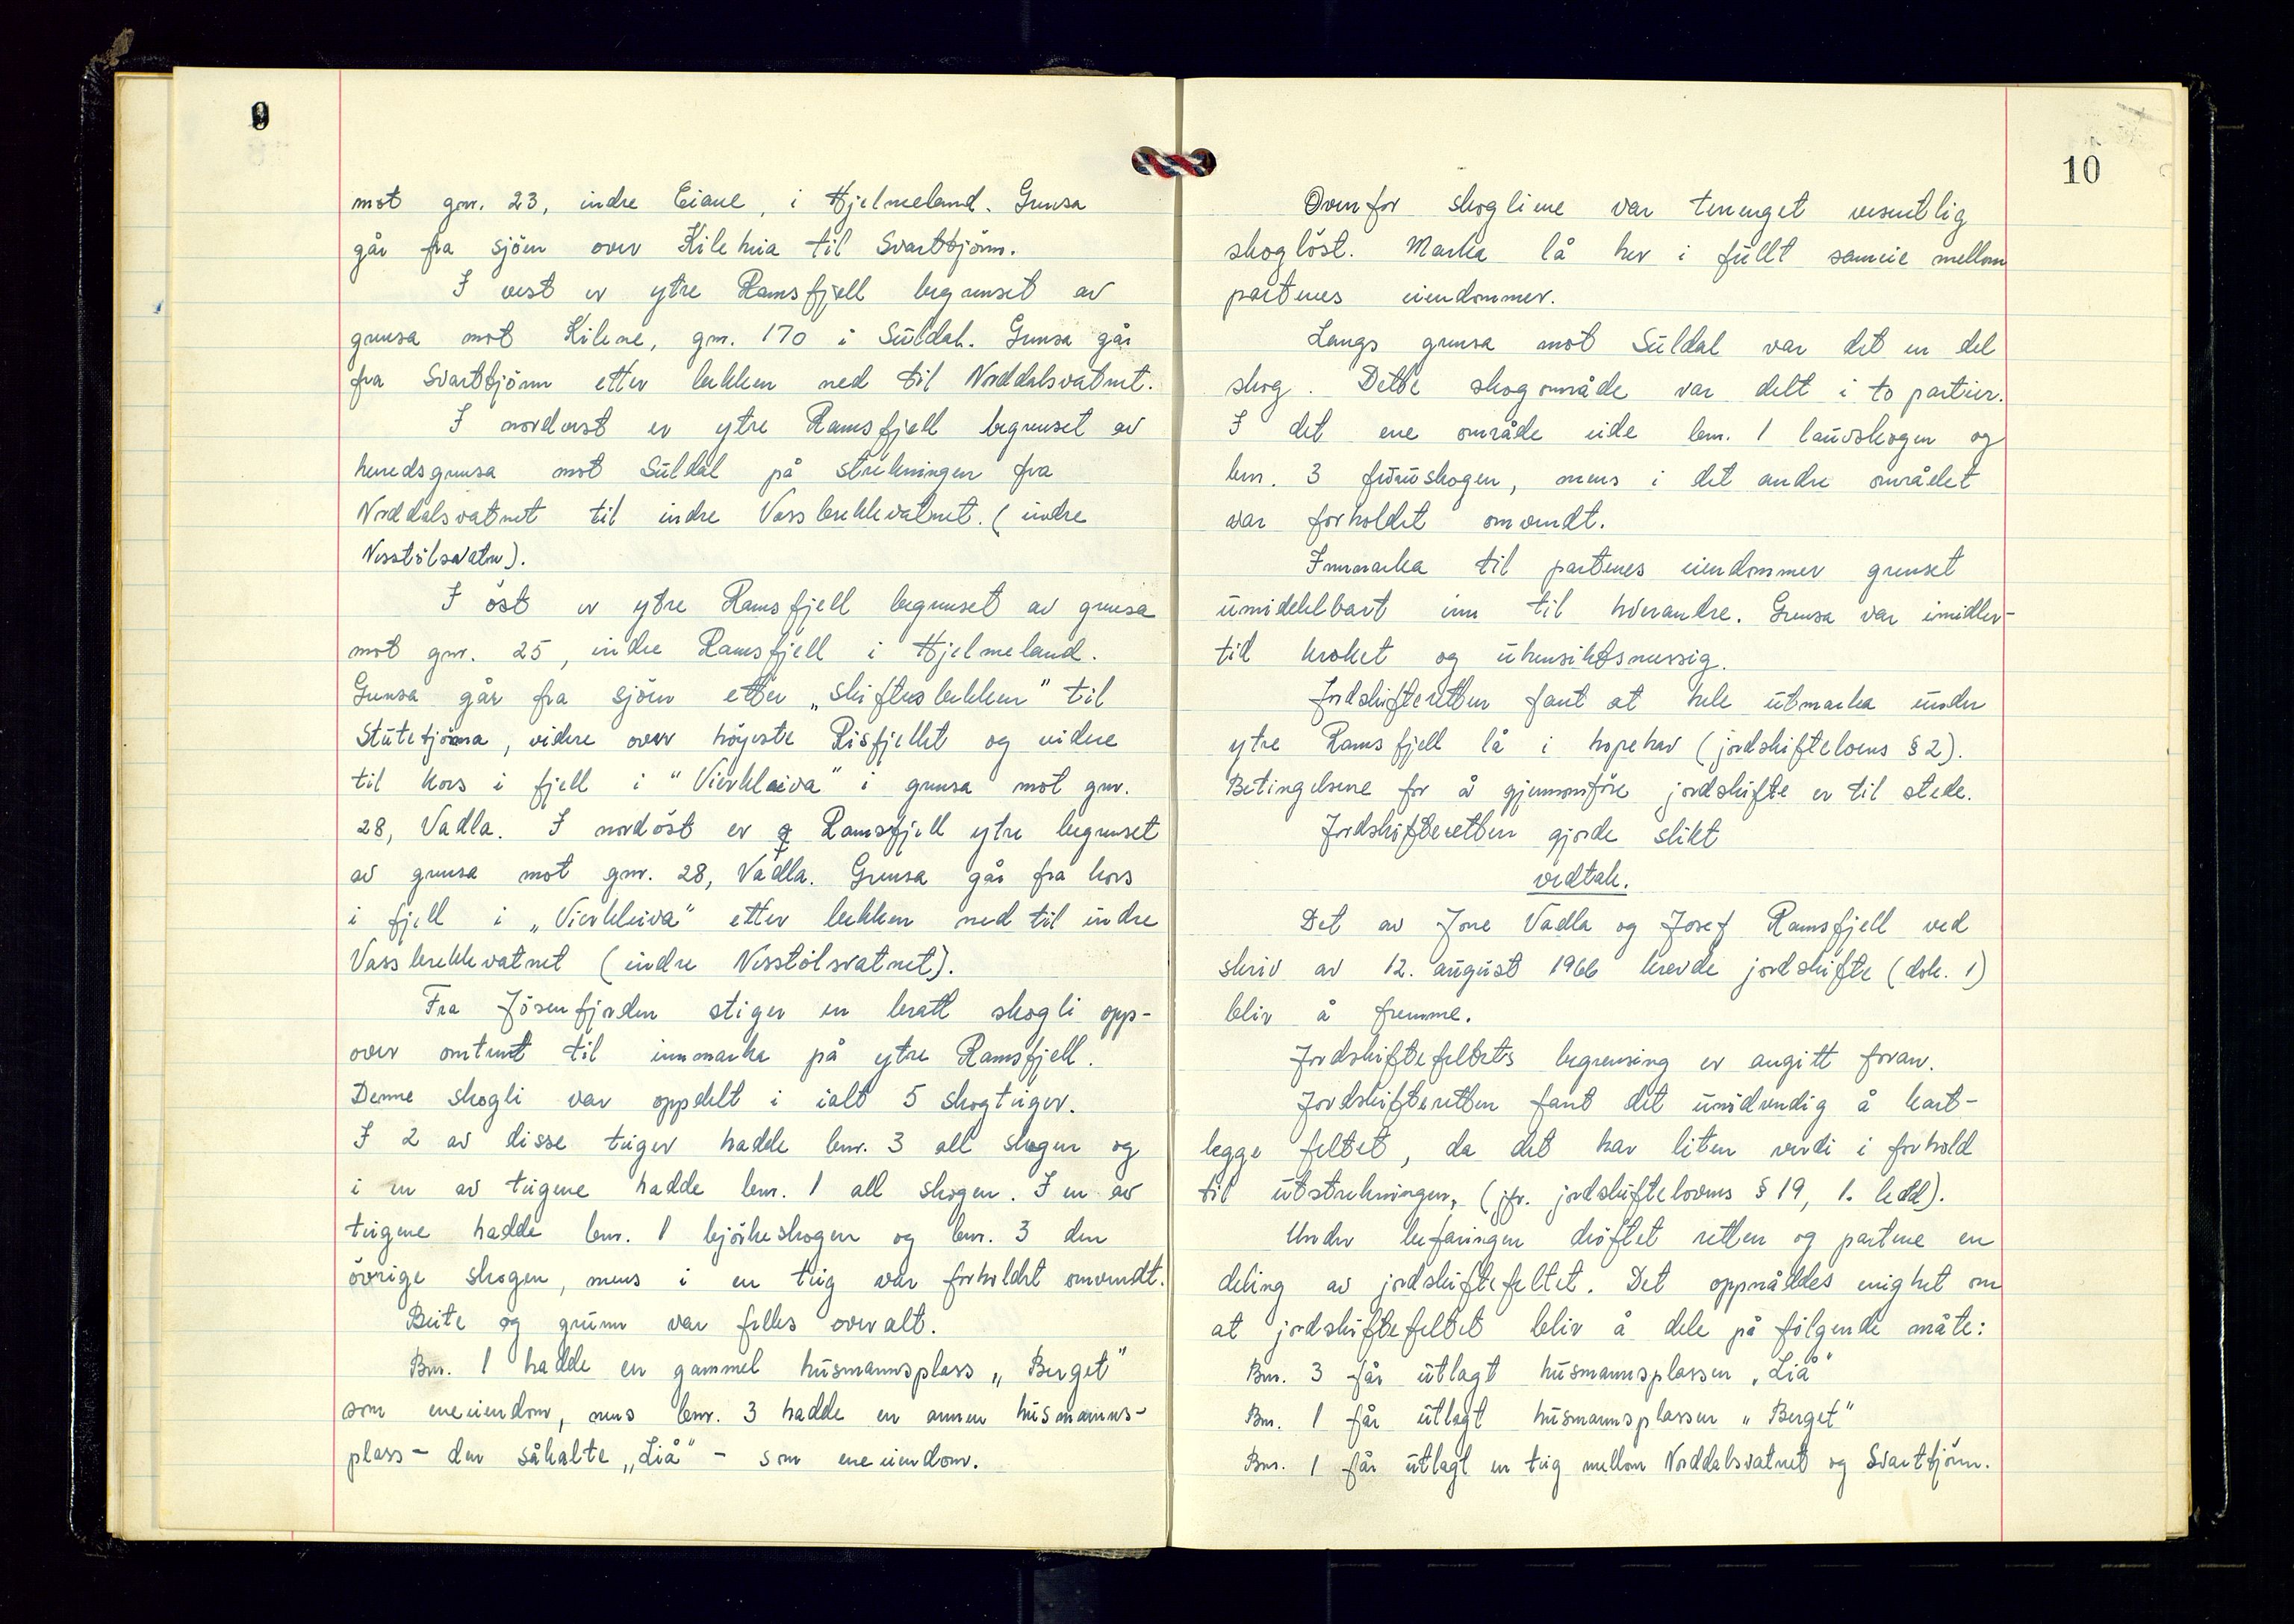 9
mot gnr. 23, indre Eiane, i Hjelmeland. Grensa
går fra sjöen over Kilehia til Svarttjönn.
I vest er ytre Ramsfjell begrenset av
grensa mot Kilene, gnr. 170 i Suldal. Grensa går
fra Svarttjönn etter bekken ned til Norddalsvatnet.
I nordvest er ytre Ramsfjell begrenset av
heredsgrensa mot Suldal på strekningen fra
Norddalsvatnet til indre Vassbrekkevatnet. (indre
Nesstölsvatn).
I öst er ytre Ramsfjell begrenset av grensa
mot gnr. 25, indre Ramsfjell i Hjelmeland.
Grensa går fra sjöen etter „skiftesbekken" til
Stutetjönna, videre over höyeste Risfjellet og videre
til kors i fjell i "Vierkleiva" i grensa mot gnr.
28, Vadla. I nordöst er Ramsfjell ytre begrenset
av grensa mot gnr. 28, Vadla. Grensa går fra kors
i fjell i „Vierkleiva" etter bekken ned til indre
Vassbrekkevatnet (indre Nesstölsvatnet).
Fra Jösenfjorden stiger en bratt skogli opp-
over omtrent til innmarka på ytre Ramsfjell.
Denne skogli var oppdelt i ialt 5 skogteiger.
I 2 av disse teiger hadde bnr. 3 all skogen og
i en av teigene hadde bnr. 1 all skogen. I en av
teigene hadde bnr. 1 björkeskogen og bnr. 3 den
övrige skogen, mens i en teig var forholdet omvendt.
Beite og grunn var felles overalt.
Bnr. 1 hadde en gammel husmannsplass „Berget"
som eneeiendom, mens bnr. 3 hadde en annen husmanns-
plass – den såkalte „Liå" – som eneeiendom.
10
Ovenfor skogliene var terrenget vesentlig
skoglöst. Marka lå her i fullt sameie mellom
partenes eiendommer.
Langs grensa mot Suldal var det en del
skog. Dette skogområde var delt i to partier.
I det ene område eide bnr. 1 lauvskogen og
bnr. 3 furuskogen, mens i det andre området
var forholdet omvendt.
Innmarka til partenes eiendommer grenset
umiddelbart inn til hverandre. Grensa var imidler-
tid kroket og uhensiktsmessig.
Jordskifteretten fant at hele utmarka under
ytre Ramsfjell lå i hopehav (jordskiftelovens § 2).
Betingelsene for å gjennomföre jordskifte er til stede.
Jordskifteretten gjorde slikt
vedtak.
Det av Jone Vadla og Josef Ramsfjell ved
skriv av 12. august 1966 krevde jordskifte (dok. 1)
bliv å fremme.
Jordskiftefeltets begrensing er angitt foran.
Jordskifteretten fant det unödvendig å kart-
legge feltet, da det har liten verdi i forhold
til utstrekningen, (jfr. jordskiftelovens § 19, 1. ledd).
Under befaringen dröftet retten og partene en
deling av jordskiftefeltet. Det oppnåddes enighet om
at jordskiftefeltet bliv å dele på fölgende måte:
Bnr. 3 får utlagt husmannsplassen „Liå"
Bnr. 1 får utlagt husmannsplassen „Berget"
Bnr. 1 får utlagt en teig mellom Norddalsvatnet og Svarttjönn.